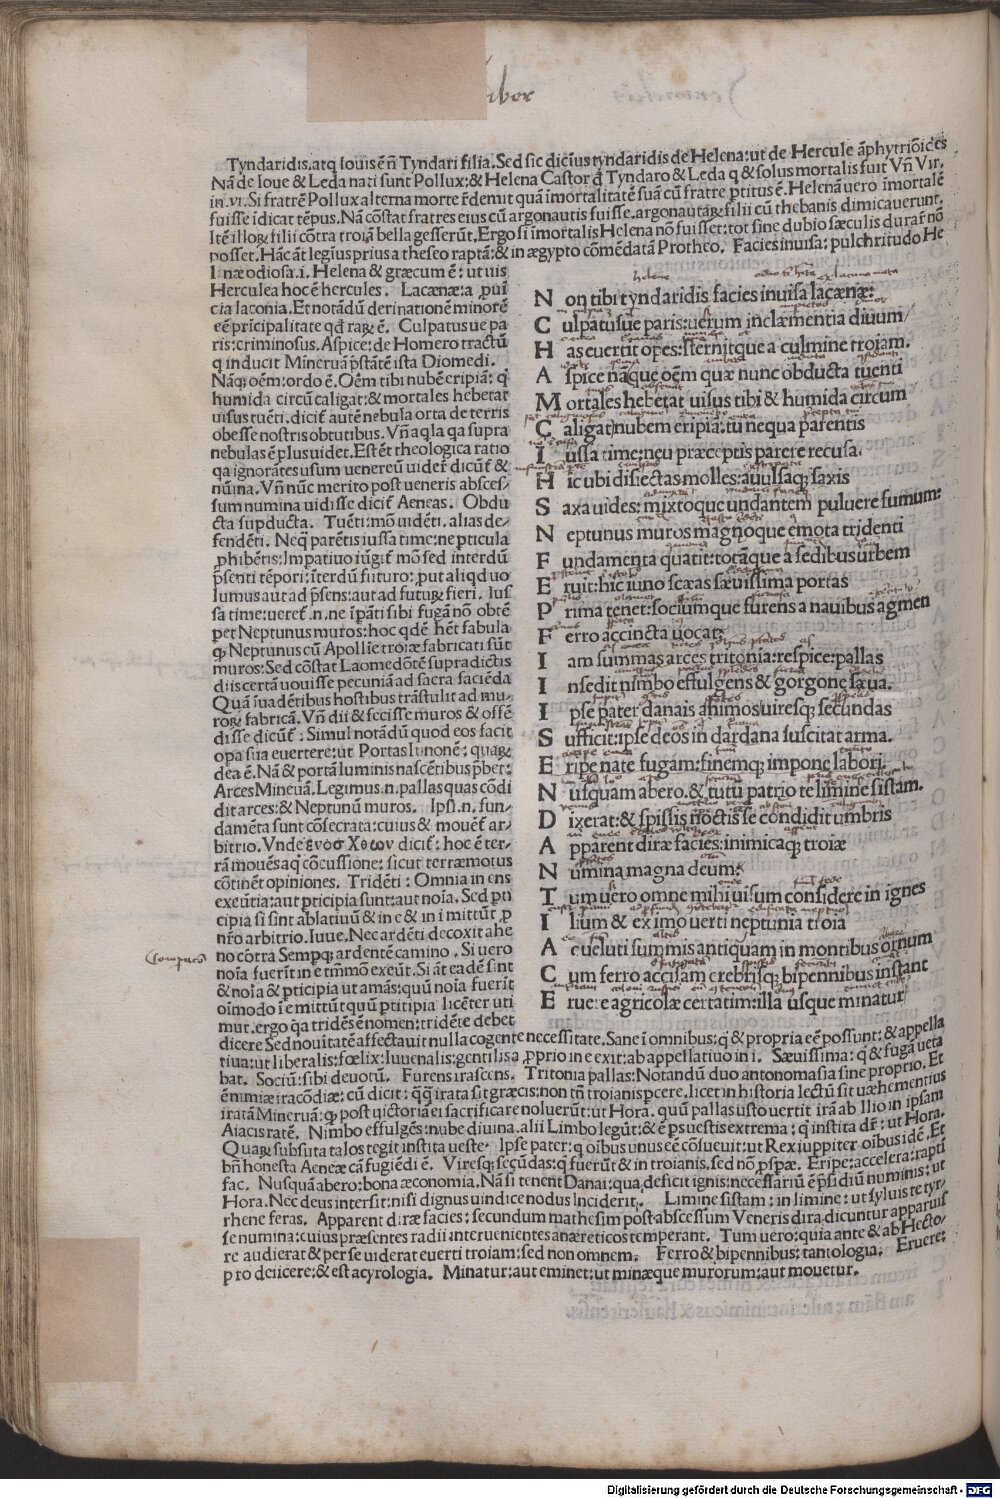 iber
Tyndaridis.atq Iouis ē n̄ Tyndari filia.Sed sic dictus tyndaridis de Helena:ut de Hercule āphytriōides
Nā de Ioue & Leda nati sunt Pollux:& Helena Castor Tyndaro & Leda q & solus mortalis fuit Vn̄ Vir.
in .vi. Si fratrē Pollux alterna morte redemit quā īmortalitatē suā cū fratre ptitus ē. Helenā uero īmortalē
fuisse īdicat tēpus. Nā cōstat fratres eius cū argonautis fuisse. argonautaꝝ filii cū thebanis dimicauerunt.
Itē illoꝝ filii cōtra troiā bella gesserūt. Ergo si īmortalis Helena nō fuisset: tot sine dubio sæculis durar̄ nō
posset. Hāc āt legius prius a theseo raptā: & in ægypto cōmēdatā Protheo. Facies inuisa: pulchritudo He
l næ odiosa .i. Helena & græcum ē: ut uis
Herculea hoc ē hercules. Lacænæ: a ꝓuī
cia laconia. Et notādū deriuationē minorē
eē prīcipalitate qd raꝝ ē. Culpatus ue pa
ris: criminosus. Aspice: de Homero tractū
q inducit Mineruā p̄stātē ista Diomedi.
Nāq; oēm: ordo ē. Oēm tibi nubē eripiā: q̄
humida circū caligat: & mortales hebetat
uisus tuēti. dicit̄ autē nebula orta de terris
obesse nostris obtutibus. Vn̄ aq̄la qa supra
nebulas ē plus uidet. Est ēt theologica ratio
qa ignorātes usum uenereū uider̄ dicūt̄ &
nūina. Vn̄ nūc merito post ueneris absces/
sum numina uidisse dicit̄ Aeneas. Obdu
cta supducta. Tuēti: mō uidēti. alias de/
fendēti. Neq; parētis iussa time: ne pticula
phibētis: Impatiuo iūgit̄ mō sed interdū
p̄senti tēpori: īterdū futuro: put aliqd uo
lumus aut ad p̄sens: aut ad futuꝝ fieri. Ius
sa time: ueret̄ .n. ne īpāti sibi fugā nō obtē
pet Neptunus muros: hoc qdē hēt fabula
q; Neptunus cū Apollīe troiæ fabricati sūt
muros: Sed cōstat Laomedōtē supradictis
diis certā uouisse pecuniā ad sacra faciēda
Quā īuadētibus hostibus trāstulit ad mu/
roꝝ fabricā. Vn̄ dii & fecisse muros & offē
disse dicūt̄: Simul notādū quod eos facit
opa sua euertere: ut Portas Iunonē: quaꝝ
dea ē. Nā & portā luminis nascētibus p̄bet:
Arces Mineruā. Legimus .n. pallas quas cōdi
dit arces: & Neptunū muros. Ipsi .n. fun/
damēta sunt cōsecrata: cuius & mouēt̄ ar/
bitrio. Vnde ἐνοσ Χθων dicit̄: hoc ē ter/
rā mouēs aq; cōcussione: sicut terræ motus
cōtinēt opiniones. Tridēti: Omnia in ens
exeūtia: aut pticipia sunt: aut noīa. Sed pti
cipia si sint ablatiuū & in e & in i mittūt ꝓ
nr̄o arbitrio. Iuue. Nec ardēti decoxit ahe
no cōtra Sempq; ardente camino. Si uero
noīa fuerīt in e tm̄mō exeūt. Si āt eadē sint
& noīa & pticipia ut amās: quū noīa fuerīt
oīmodo ī e mittūt quū ptitipia licēter uti
mur. ergo qa tridēs ē nomen: tridēte debet
N on tibi tyndaridis facies inuisa lacænæ:
C ulpatusue paris: uerum inclæmentia diuum/
H as euertit opes: sternitque a culmine troiam.
A spice nāque oēm quæ nunc obducta tuenti
M ortales hebetat uisus tibi & humida circum
C aligat) nubem eripiā: tu nequa parentis
I ussa time: neu præceptis parere recusa.
H ic ubi disiectas molles: auulsaq; saxis
S axa uides: mixtoque undantem puluere fumum:
N eptunus muros magnoque emota tridenti
F undamenta quatit: totāque a sedibus urbem
E ruit: hic iuno scæas sæuissima portas
P rima tenet: sociumque furens a nauibus agmen
F erro accincta uocat:
I am summas arces tritonia: respice: pallas
I nsedit nimbo effulgens & gorgone sæua.
I pse pater danais animos uiresq; secundas
S ufficit: ipse deos in dardana suscitat arma.
E ripe nate fugam: finemq; impone labori.
N usquam abero. & tutū patrio te limine sistam.
D ixerat: & spissis noctis se condidit umbris
A pparent diræ facies: inimicaq; troiæ
N umina magna deum:
T um uero omne mihi uisum considere in ignes
I lium & ex imo uerti neptunia troia
A c ueluti summis antiquam in montibus ornum
C um ferro accisam crebrisq; bipennibus instant
E ruere agricolæ certatim: illa usque minatur
dicere Sed nouitatē affectauit nulla cogente necessitate. Sane ī omnibus: q & propria eē possunt: & appella
tiua: ut liberalis: fœlix: Iuuenalis: gentilis a ꝓprio in e exit: ab appellatiuo in i. Sæuissima: q & fuga ueta
bat. Sociū: sibi deuotū. Furens irascens. Tritonia pallas: Notandū duo antonomasia sine proprio. Et
ē nimiæ iracōdiæ: cū dicit: qq̄ irata sit græcis: non tn̄ troianis pcere. licet in historia lectū sit uæhementius
iratā Mineruā: q; post uictoriā ei sacrificare noluerūt: ut Hora. quū pallas usto uertit irā ab Ilio in ipsam
Aiacis ratē. Nimbo effulgēs: nube diuina. alii Limbo legūt: & ē p̄s uestis extrema: q̄ instita dr̄: ut Hora.
Quaꝝ subsuta talos tegit instita ueste. Ipse pater: q oībus unus eē cōsueuit: ut Rex iuppiter oībus idē. Et
bn̄ honesta Aeneæ cā fugiēdi ē. Viresq; secūdas: q̄ fuerūt & in troianis. sed nō ꝓspæ. Eripe: accelera: rapti
fac. Nusquā abero: bona æconomia. Nā si tenent Danai: qua deficit ignis: necessariū ē p̄sidiū numinis: ut
Hora. Nec deus intersit: nisi dignus uindice nodus Inciderit. Limine sistam: in limine: ut syluis te tyr/
rhene feras. Apparent diræ facies: secundum mathesim post abscessum Veneris dira dicuntur apparuis
se numina: cuius præsentes radii interuenientes anæreticos temperant. Tum uero: quia ante & ab Hecto/
re audierat & per se uiderat euerti troiam: sed non omnem. Ferro & bipennibus: tautologia. Eruere:
pro deiicere: & est acyrologia. Minatur: aut eminet: ut minæque murorum: aut mouetur.
Digitalisierung gefördert durch die Deutsche Forschungsgemeinschaft - DFG